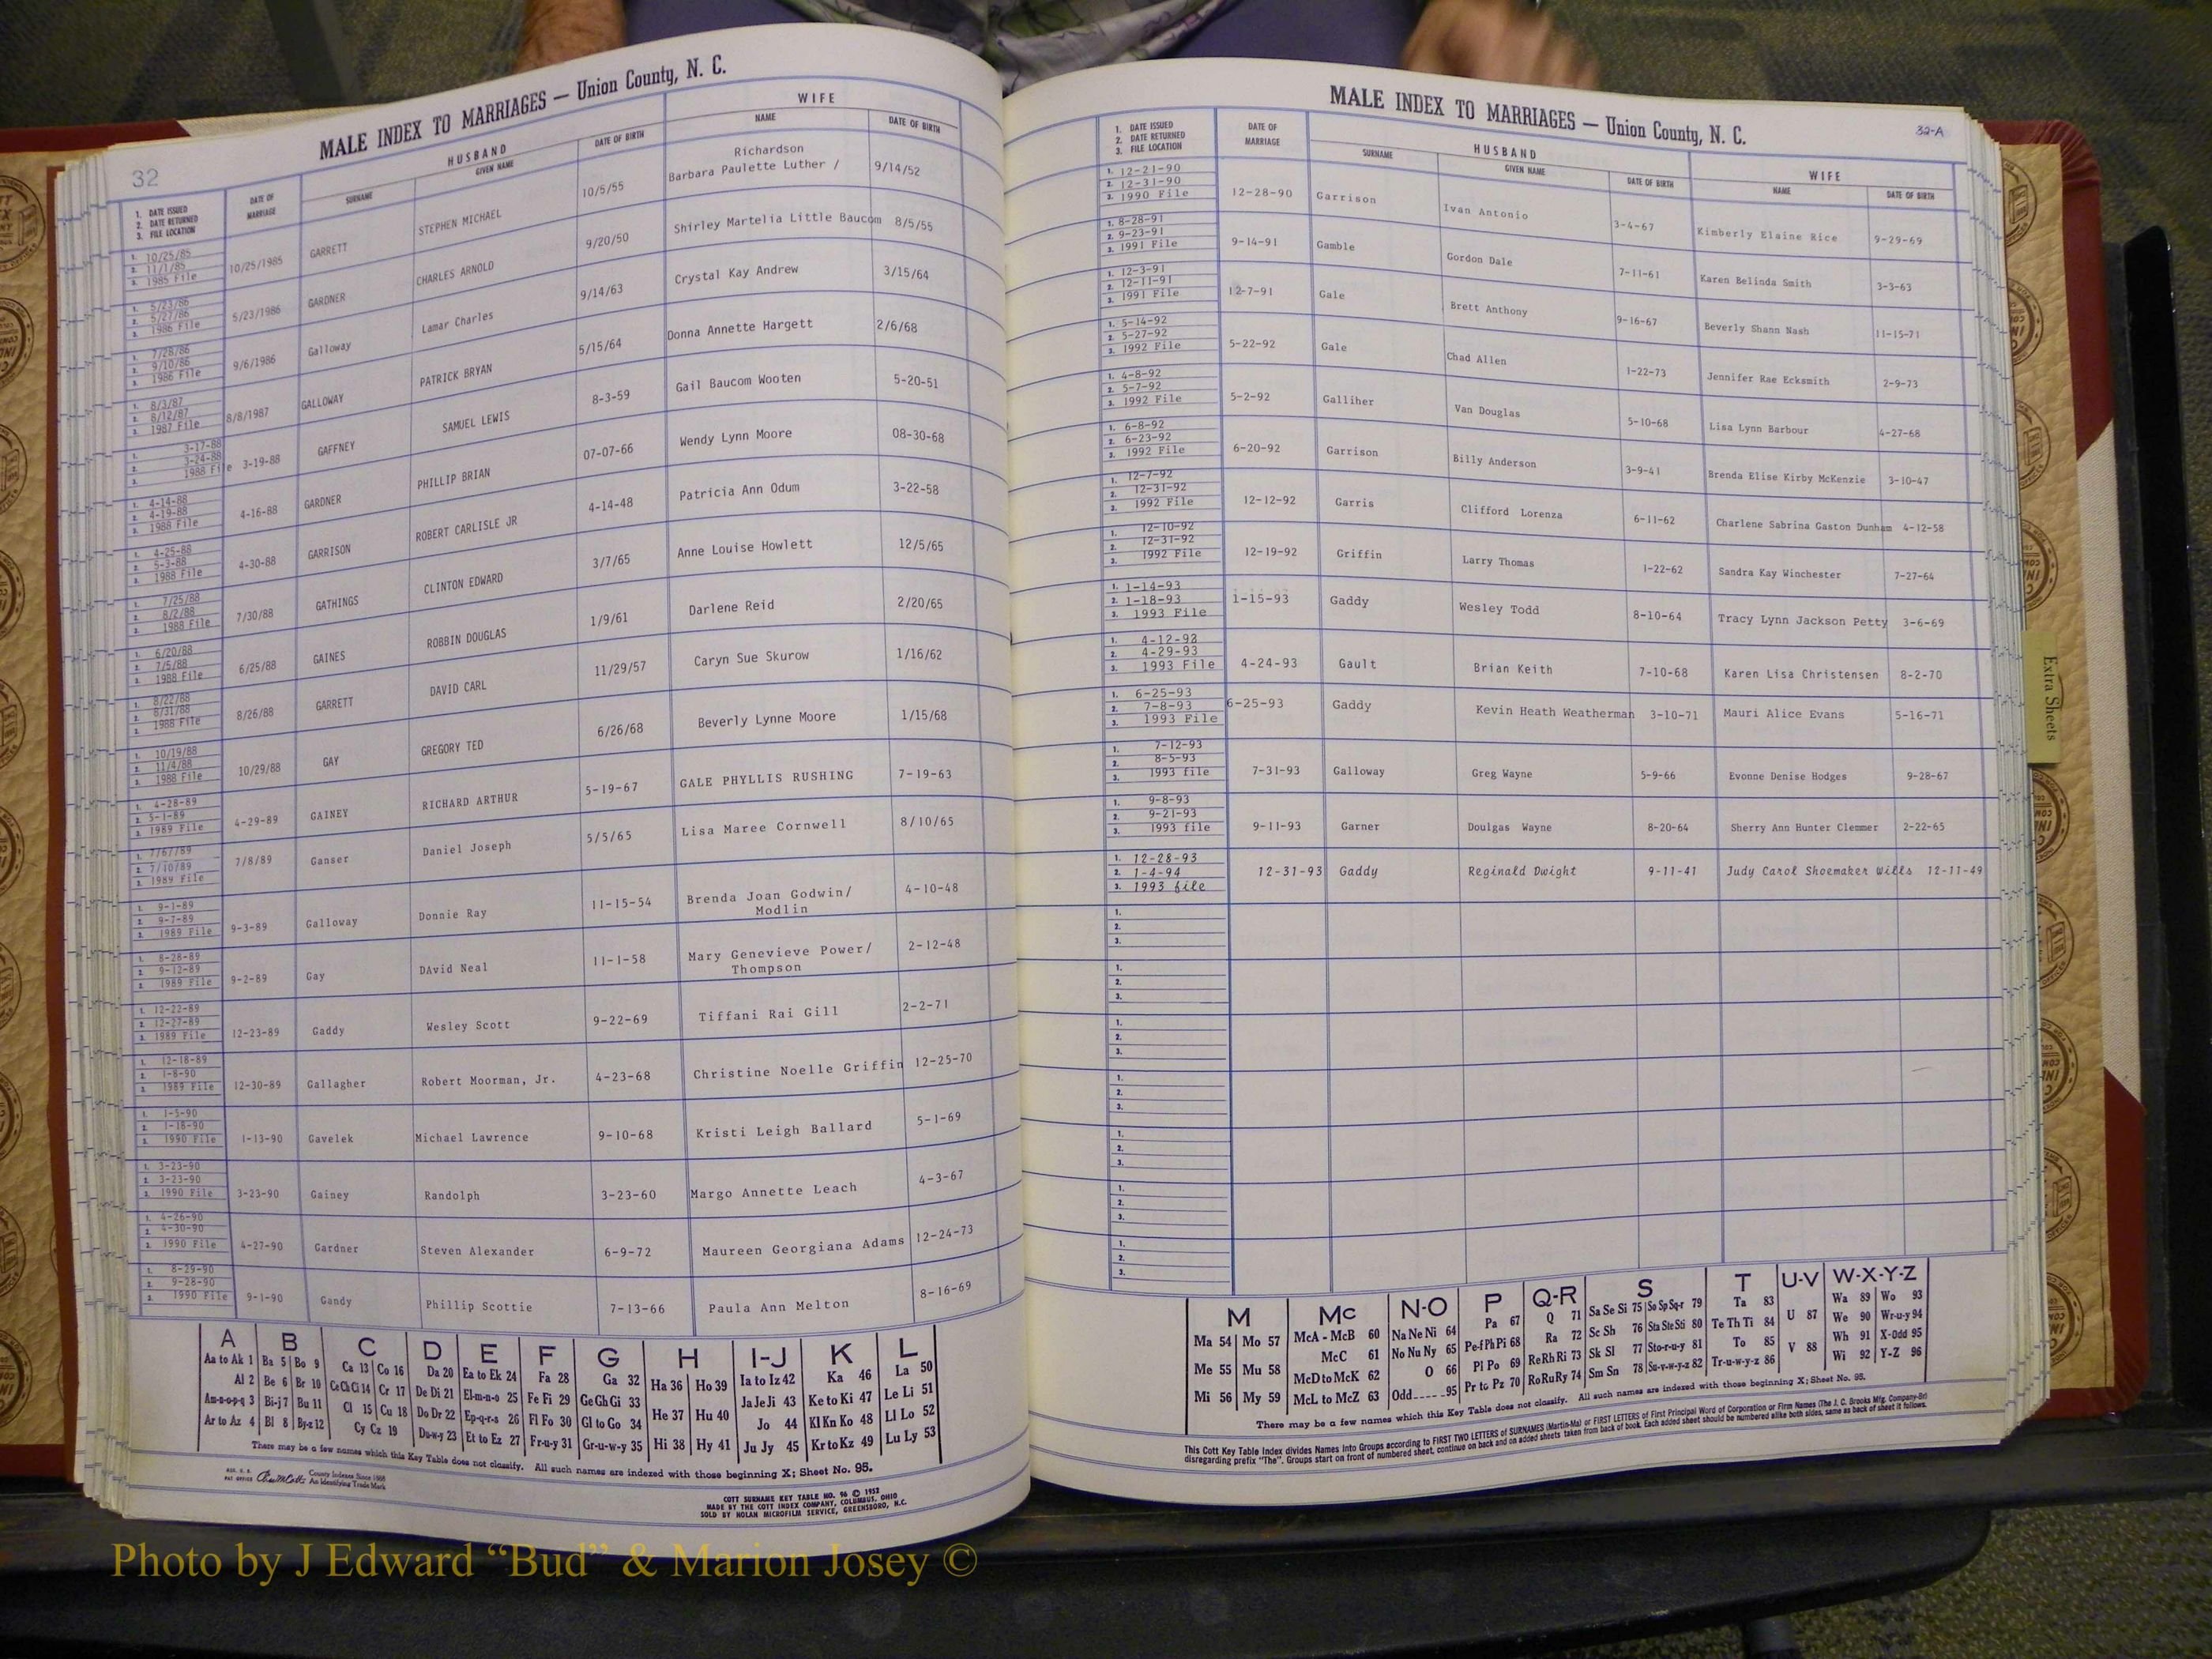 32
MALE INDEX TO MARRIAGES — Union County, N. C.
1. DATE ISSUED
2. DATE RETURNED
3. FILE LOCATION
DATE OF MARRIAGE
HUSBAND
SURNAME GIVEN NAME DATE OF BIRTH
WIFE
NAME DATE OF BIRTH
1. 10/25/85
2. 11/1/85
3. 1985 File
10/25/1985 GARRETT STEPHEN MICHAEL 10/5/55 Richardson
Barbara Paulette Luther / 9/14/52
1. 5/23/86
2. 5/27/86
3. 1986 File
5/23/1986 GARDNER CHARLES ARNOLD 9/20/50 Shirley Martelia Little Baucom 8/5/55
1. 7/28/86
2. 9/10/86
3. 1986 File
9/6/1986 Galloway Lamar Charles 9/14/63 Crystal Kay Andrew 3/15/64
1. 8/3/87
2. 8/12/87
3. 1987 File
8/8/1987 GALLOWAY PATRICK BRYAN 5/15/64 Donna Annette Hargett 2/6/68
1. 3-17-88
2. 3-24-88
3. 1988 File
3-19-88 GAFFNEY SAMUEL LEWIS 8-3-59 Gail Baucom Wooten 5-20-51
1. 4-14-88
2. 4-19-88
3. 1988 File
4-16-88 GARDNER PHILLIP BRIAN 07-07-66 Wendy Lynn Moore 08-30-68
1. 4-25-88
2. 5-3-88
3. 1988 File
4-30-88 GARRISON ROBERT CARLISLE JR 4-14-48 Patricia Ann Odum 3-22-58
1. 7/25/88
2. 8/2/88
3. 1988 File
7/30/88 GATHINGS CLINTON EDWARD 3/7/65 Anne Louise Howlett 12/5/65
1. 6/20/88
2. 7/5/88
3. 1988 File
6/25/88 GAINES ROBBIN DOUGLAS 1/9/61 Darlene Reid 2/20/65
1. 8/22/88
2. 8/31/88
3. 1988 File
8/26/88 GARRETT DAVID CARL 11/29/57 Caryn Sue Skurow 1/16/62
1. 10/19/88
2. 11/4/88
3. 1988 File
10/29/88 GAY GREGORY TED 6/26/68 Beverly Lynne Moore 1/15/68
1. 4-28-89
2. 5-1-89
3. 1989 File
4-29-89 GAINEY RICHARD ARTHUR 5-19-67 GALE PHYLLIS RUSHING 7-19-63
1. 7/6/89
2. 7/10/89
3. 1989 File
7/8/89 Ganser Daniel Joseph 5/5/65 Lisa Maree Cornwell 8/10/65
1. 9-1-89
2. 9-7-89
3. 1989 File
9-3-89 Galloway Donnie Ray 11-15-54 Brenda Joan Godwin/
Modlin 4-10-48
1. 8-28-89
2. 9-12-89
3. 1989 File
9-2-89 Gay DAvid Neal 11-1-58 Mary Genevieve Power/
Thompson 2-12-48
1. 12-22-89
2. 12-27-89
3. 1989 File
12-23-89 Gaddy Wesley Scott 9-22-69 Tiffani Rai Gill 2-2-71
1. 12-18-89
2. 1-8-90
3. 1989 File
12-30-89 Gallagher Robert Moorman, Jr. 4-23-68 Christine Noelle Griffin 12-25-70
1. 1-5-90
2. 1-18-90
3. 1990 File
1-13-90 Gavelek Michael Lawrence 9-10-68 Kristi Leigh Ballard 5-1-69
1. 3-23-90
2. 3-23-90
3. 1990 File
3-23-90 Gainey Randolph 3-23-60 Margo Annette Leach 4-3-67
1. 4-26-90
2. 4-30-90
3. 1990 File
4-27-90 Gardner Steven Alexander 6-9-72 Maureen Georgiana Adams 12-24-73
1. 8-29-90
2. 9-28-90
3. 1990 File
9-1-90 Gandy Phillip Scottie 7-13-66 Paula Ann Melton 8-16-69
A B C D E F G H I-J K L
Aa to Ak 1 Ba 5 Bo 9 Ca 13 Co 16 Da 20 Ea to Ek 24 Fa 28 Ga 32 Ha 36 Ho 39 Ia to Iz 42 Ka 46 La 50
Al 2 Be 6 Br 10 Ce Ch Ci 14 Cr 17 De Di 21 El-m-n-o 25 Fe Fi 29 Ge Gh Gi 33 Ja Je Ji 43 Ke to Ki 47 Le Li 51
Am-n-o-p-q 3 Bi-j 7 Bu 11 Cl 15 Cu 18 Do Dr 22 Ep-q-r-s 26 Fl Fo 30 Gl to Go 34 He 37 Hu 40 Jo 44 Kl Kn Ko 48 Ll Lo 52
Ar to Az 4 Bl 8 By-z 12 Cy Cz 19 Du-w-y 23 Et to Ez 27 Fr-u-y 31 Gr-u-w-y 35 Hi 38 Hy 41 Ju Jy 45 Kr to Kz 49 Lu Ly 53
There may be a few names which this Key Table does not classify. All such names are indexed with those beginning X; Sheet No. 95.
County Indexes Since 1888
An Identifying Trade Mark
COTT SURNAME KEY TABLE NO. 96 © 1952
MADE BY THE COTT INDEX COMPANY, COLUMBUS, OHIO
SOLD BY NOLAN MICROFILM SERVICE, GREENSBORO, N.C.
MALE INDEX TO MARRIAGES — Union County, N. C.
32-A
1. DATE ISSUED
2. DATE RETURNED
3. FILE LOCATION
DATE OF MARRIAGE
HUSBAND
SURNAME GIVEN NAME DATE OF BIRTH
WIFE
NAME DATE OF BIRTH
1. 12-21-90
2. 12-31-90
3. 1990 File
12-28-90 Garrison Ivan Antonio 3-4-67 Kimberly Elaine Rice 9-29-69
1. 8-28-91
2. 9-23-91
3. 1991 File
9-14-91 Gamble Gordon Dale 7-11-61 Karen Belinda Smith 3-3-63
1. 12-3-91
2. 12-11-91
3. 1991 File
12-7-91 Gale Brett Anthony 9-16-67 Beverly Shann Nash 11-15-71
1. 5-14-92
2. 5-27-92
3. 1992 File
5-22-92 Gale Chad Allen 1-22-73 Jennifer Rae Ecksmith 2-9-73
1. 4-8-92
2. 5-7-92
3. 1992 File
5-2-92 Galliher Van Douglas 5-10-68 Lisa Lynn Barbour 4-27-68
1. 6-8-92
2. 6-23-92
3. 1992 File
6-20-92 Garrison Billy Anderson 3-9-41 Brenda Elise Kirby McKenzie 3-10-47
1. 12-7-92
2. 12-31-92
3. 1992 File
12-12-92 Garris Clifford Lorenza 6-11-62 Charlene Sabrina Gaston Dunham 4-12-58
1. 12-10-92
2. 12-31-92
3. 1992 File
12-19-92 Griffin Larry Thomas 1-22-62 Sandra Kay Winchester 7-27-64
1. 1-14-93
2. 1-18-93
3. 1993 File
1-15-93 Gaddy Wesley Todd 8-10-64 Tracy Lynn Jackson Petty 3-6-69
1. 4-12-93
2. 4-29-93
3. 1993 File
4-24-93 Gault Brian Keith 7-10-68 Karen Lisa Christensen 8-2-70
1. 6-25-93
2. 7-8-93
3. 1993 File
6-25-93 Gaddy Kevin Heath Weatherman 3-10-71 Mauri Alice Evans 5-16-71
1. 7-12-93
2. 8-5-93
3. 1993 file
7-31-93 Galloway Greg Wayne 5-9-66 Evonne Denise Hodges 9-28-67
1. 9-8-93
2. 9-21-93
3. 1993 file
9-11-93 Garner Doulgas Wayne 8-20-64 Sherry Ann Hunter Clemmer 2-22-65
1. 12-28-93
2. 1-4-94
3. 1993 file
12-31-93 Gaddy Reginald Dwight 9-11-41 Judy Carol Shoemaker Wills 12-11-49
1.
2.
3.
1.
2.
3.
1.
2.
3.
1.
2.
3.
1.
2.
3.
1.
2.
3.
1.
2.
3.
M Mc N-O P Q-R S T U-V W-X-Y-Z
Ma 54 Mo 57 McA - McB 60 Na Ne Ni 64 Pa 67 Q 71 Sa Se Si 75 So Sp Sq-r 79 Ta 83 U 87 Wa 89 Wo 93
Me 55 Mu 58 McC 61 No Nu Ny 65 Pe-f Ph Pi 68 Ra 72 Sc Sh 76 Sta Ste Sti 80 Te Th Ti 84 We 90 Wr-u-y 94
McD to McK 62 O 66 Pl Po 69 Re Rh Ri 73 Sk Sl 77 Sto-r-u-y 81 To 85 V 88 Wh 91 X-Odd 95
Mi 56 My 59 McL to McZ 63 Odd 95 Pr to Pz 70 Ro Ru Ry 74 Sm Sn 78 Su-v-w-y-z 82 Tr-u-w-y-z 86 Wi 92 Y-Z 96
There may be a few names which this Key Table does not classify. All such names are indexed with those beginning X; Sheet No. 95.
This Cott Key Table Index divides Names Into Groups according to FIRST TWO LETTERS of SURNAMES (Martin-Ma) or FIRST LETTERS of First Principal Word of Corporation or Firm Names (The J. C. Brooks Mfg. Company-Br)
disregarding prefix "The". Groups start on front of numbered sheet, continue on back and on added sheets taken from back of book. Each added sheet should be numbered alike both sides, same as back of sheet it follows.
Extra Sheets
Photo by J Edward “Bud” & Marion Josey ©